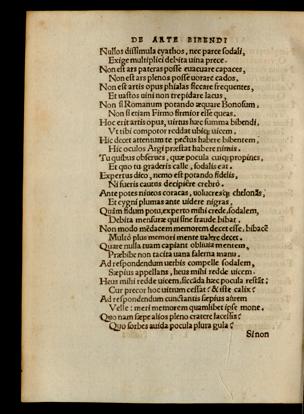 DE ARTE BIBENDI
Nullos dissimula cyathos, nec parce sodali,
Exige multiplici debita uina prece.
Non est ars pateras posse euacuare capaces,
Non est ars plenos posse uorare cados.
Non est artis opus phialas siccare frequentes,
Et uastos uini non trepidare lacus.
Non si Romanum potando æquare Bonosum,
Non si etiam Firmo firmior esse queas.
Hoc erit artis opus, uirtus hæc summa bibendi
Vt tibi compotor reddat ubiq; uicem.
Hic decet attentum te pectus habere bibentem,
Hic oculos Argi præstat habere nimis.
Tu quibus obserues, quæ pocula cuiq; propines,
Et quo tu graderis calle, sodalis eat.
Expertus dico, nemo est potando fidelis,
Ni fueris cautus decipiere crebrò.
Ante potes niueos coracas, uolucresq;
Et cygni plumas ante uidere nigras,
Quàm fidum potu, experto mihi crede, sodalem,
Debita mensuræ qui sine fraude bibat.
Non modo mẽdacem memorem decet esse, bibacẽ
Multò plus memori mente ualere decet.
Quare nulla tuam capiant obliuia mentem,
Præbibe non tacita uana falerna manu.
Ad respondendum uerbis compelle sodalem,
Sæpius appellans, heus mihi redde uicem.
Heus mihi redde uicem, siccãda hæc pocula restãt:
Cur precor hoc uitrum cessat? & iste calix?
Ad respondendum cunctantis sæpius aurem
Velle: meri memorem quamlibet ipse mone.
Quo nam sæpe alios pleno cratere lacessis?
Quo sorbes auida pocula plura gula?
Si non